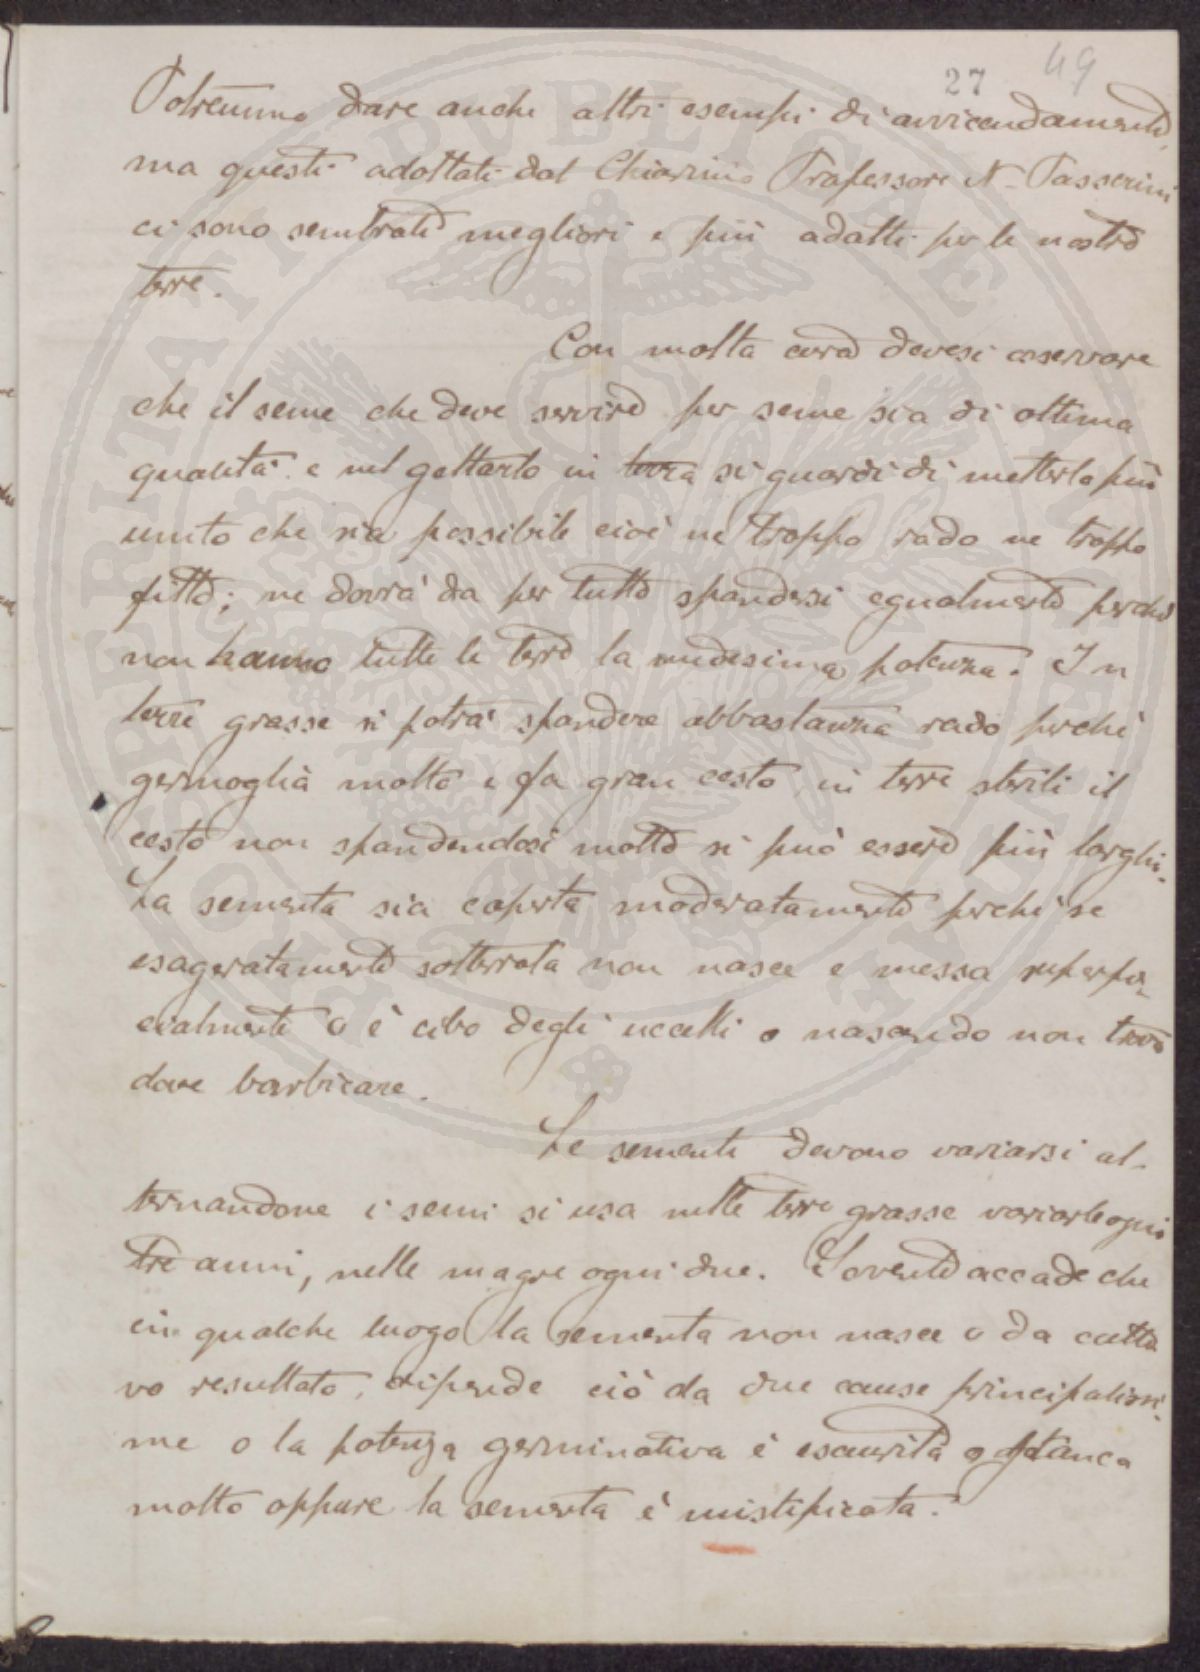 27 49
Potremmo dare anche altri esempi di avvicendamento,
ma questi adottati dal Chiarmo Professore N. Passerini
ci sono sembrati megliori e più adatti per le nostre
terre.
Con molta cura devesi osservare
che il seme che deve servire per seme sia di ottima
qualità e nel gettarlo in terra si guardi di metterlo più
unito che sia possibile cioè ne troppo rado ne troppo
fitto; ne dovrà da per tutto spandersi egualmente perchè
non hanno tutte le terre la medesima potenza. In
terre grasse si potrà spandere abbastanza rado perchè
germoglia molto e fa gran cesto, in terre sterili il
cesto non spandendosi molto si può essere più larghi.
La sementa sia coperta moderatamente perchè se
esageratamente sotterrata non nasce e messa superfi-
cialmente o è cibo degli uccelli o nascendo non trova
dove barbicare.
Le sementi devono variarsi al-
ternandone i semi si usa nelle terre grasse variarle ogni
tre anni, nelle magre ogni due. Sovente accade che
in qualche luogo la sementa non nasce o da catti
vo resultato, dipende ciò da due cause principalissi-
me o la potenza germinativa è esaurita o stanca
molto oppure la sementa è mistificata.
PROSPERITATI PUBLICAE